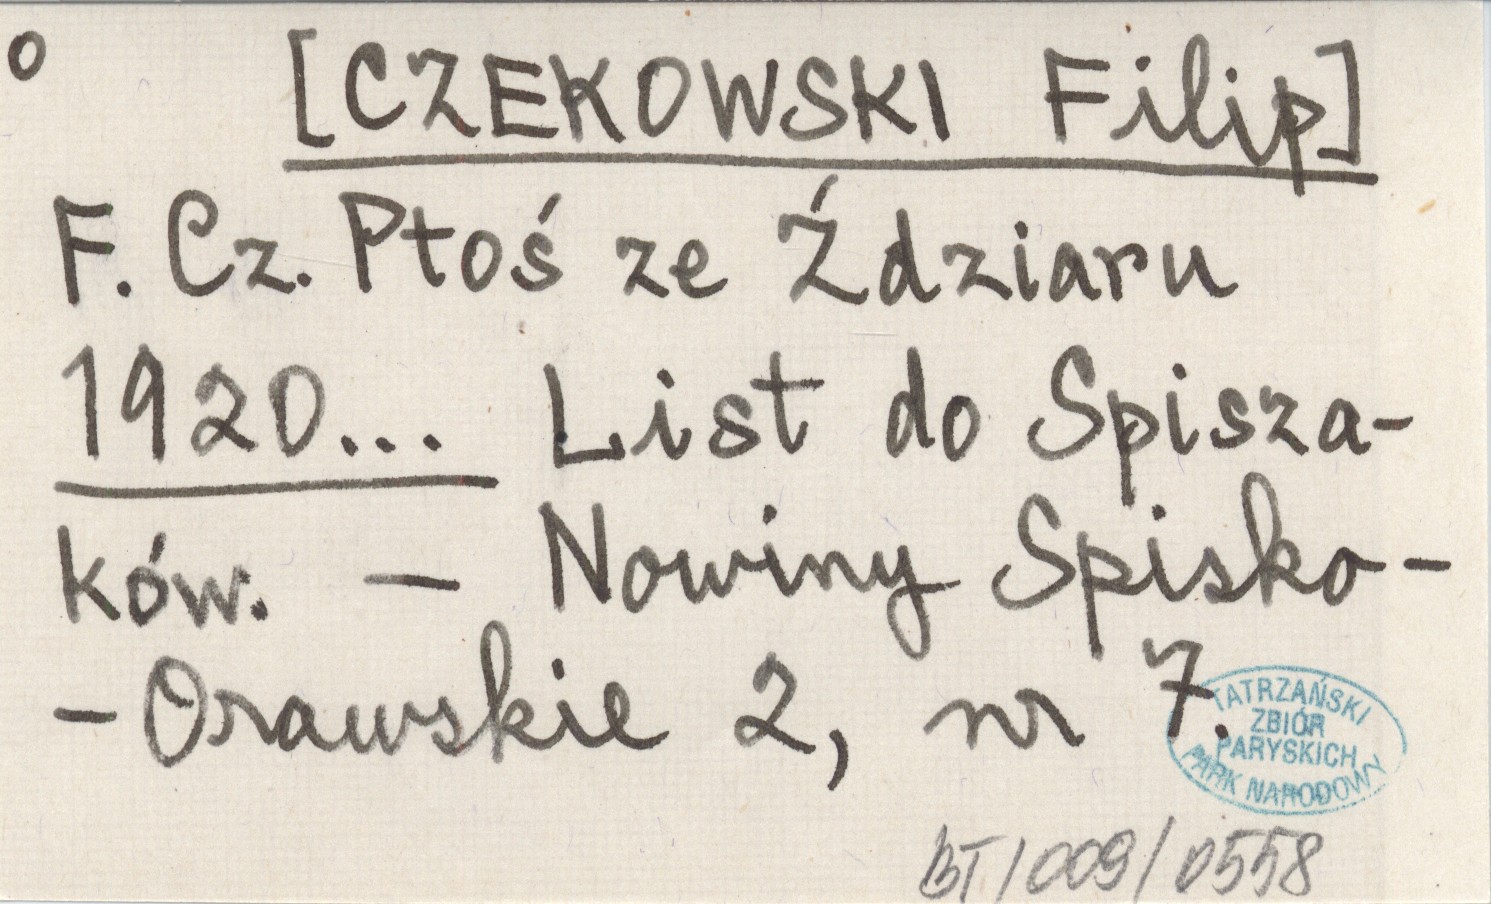 o [CZEKOWSKI Filip]
F. Cz. Ptoś ze Ździaru
1920... List do Spisza-
ków. — Nowiny Spisko-
-Orawskie 2, nr 7.
TATRZAŃSKI
ZBIÓR
PARYSKICH
PARK NARODOWY
BT/009/0558